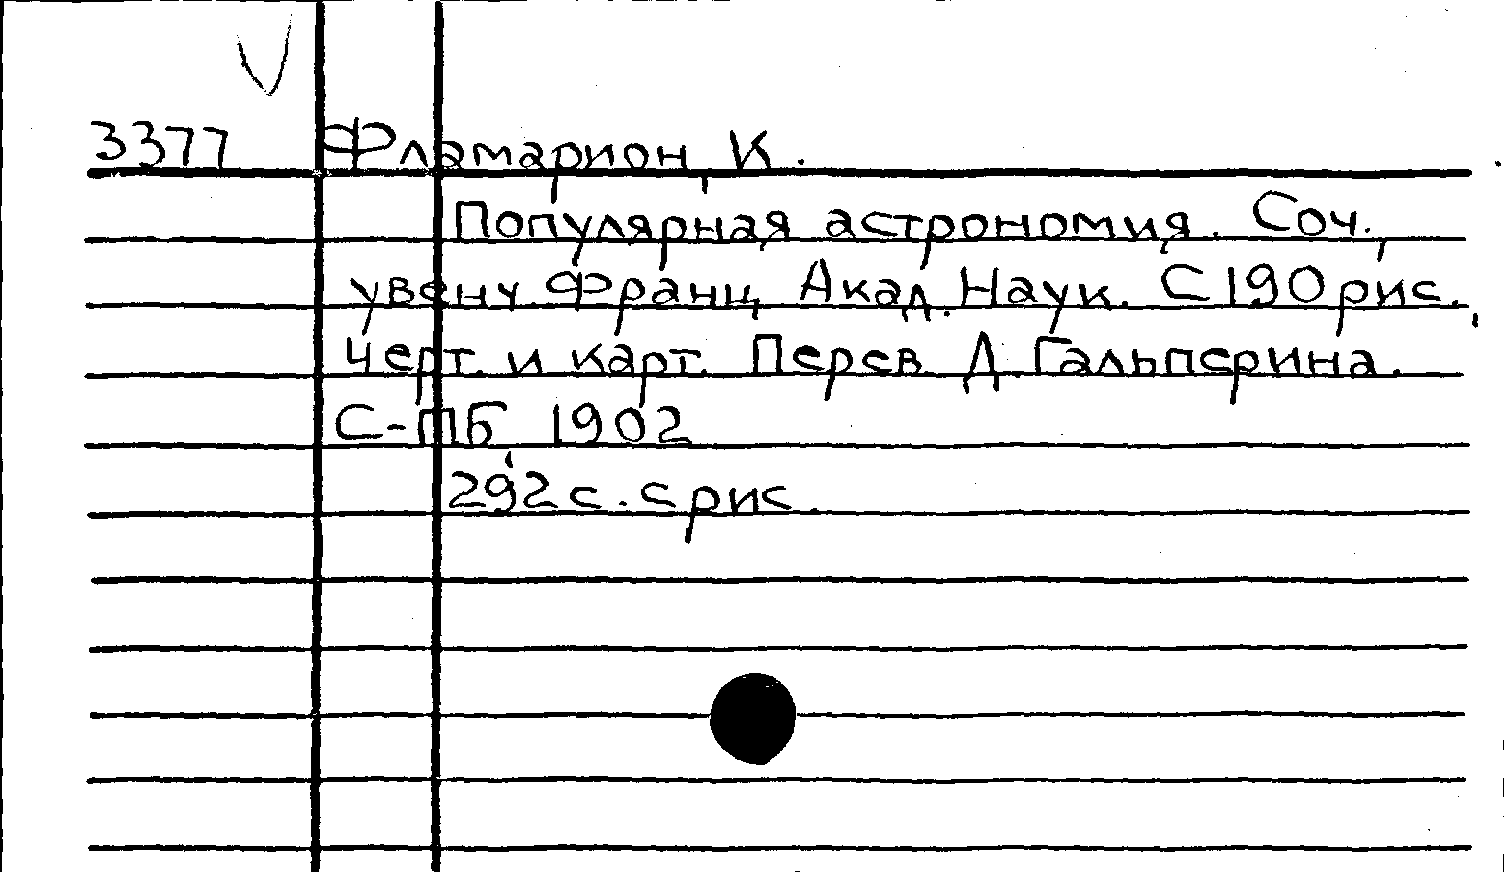 3377 Фламарион, К.
Популярная астрономия. Соч.,
увенч. Франц. Акад. Наук. С 190 рис.,
черт. и карт. Перев. Д. Гальперина.
С-ПБ, 1902
292 с. с рис.